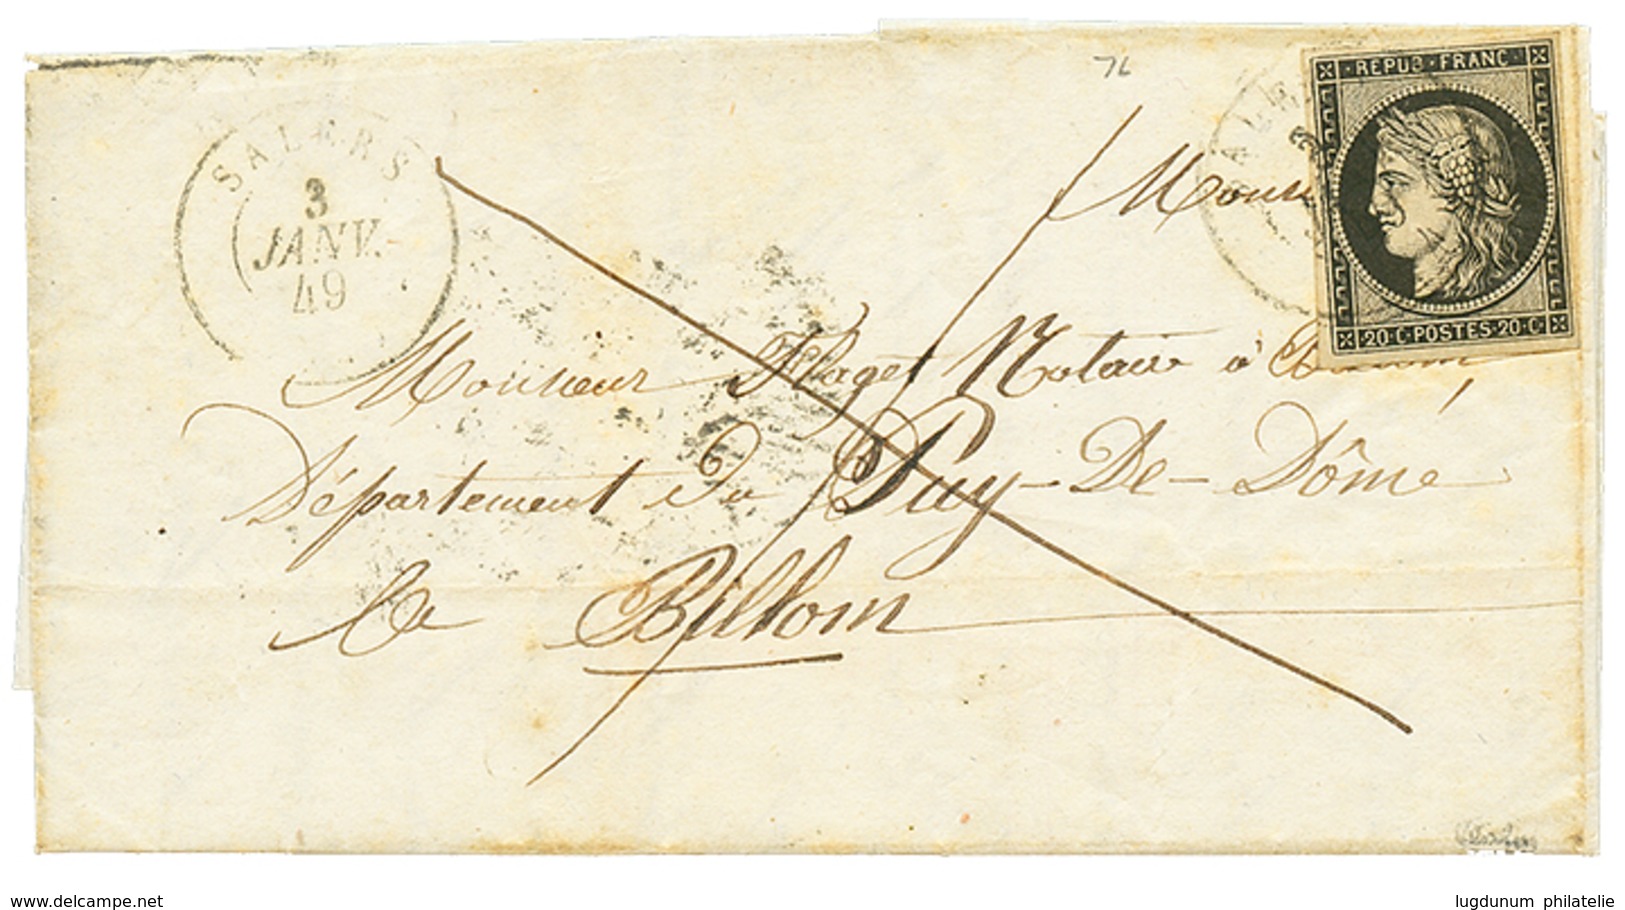 76
SALERS
3
JANV.
49
REPUB · FRANC
20 · C · POSTES · 20 · C
Monsieur
Monsieur Flaget Notaire à Billom
Département du Puy-De-Dôme
A Billom
www.delcampe.net
lugdunum philatelie